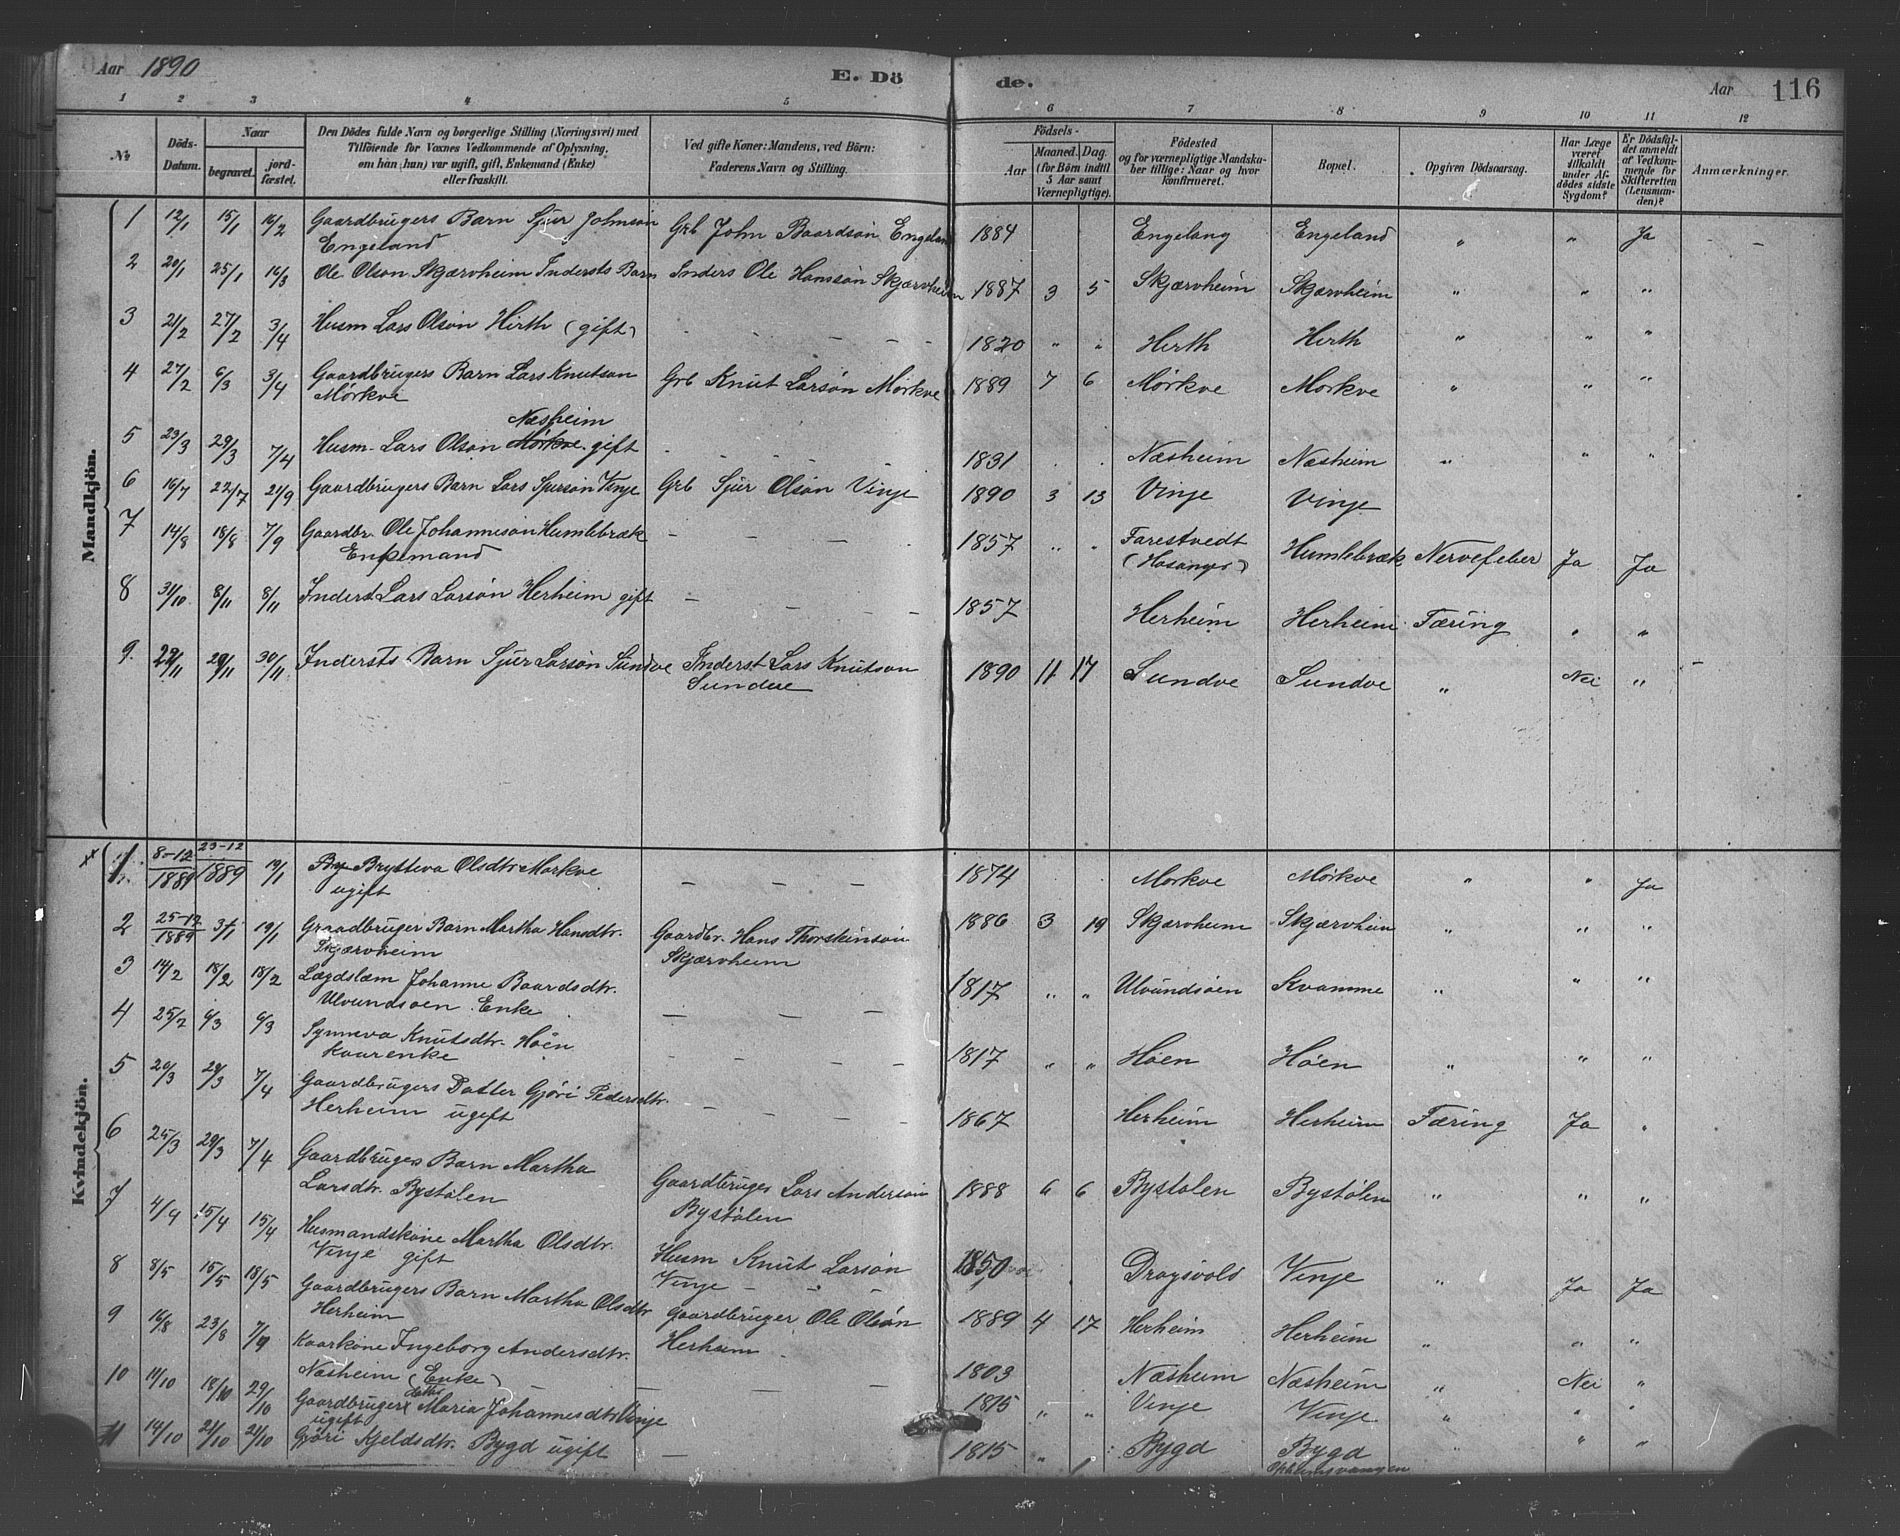 Aar 1890 E. Dö de. Aar 116
1 2 3 4 5 6 7 8 9 10 11 12
No. Döds-Datum. Naar begravet. jordfæstet. Den Dödes fulde Navn og borgerlige Stilling (Næringsvei) med Tilföiende for Voxnes Vedkommende af Oplysning, om han (hun) var ugift, gift, Enkemand (Enke) eller fraskilt. Ved gifte Koner: Mandens, ved Börn: Faderens Navn og Stilling. Födsels- Aar Maaned. Dag. (for Börn indtil 5 Aar samt Værnepligtige). Födested og for værnepligtige Mandskaber tillige: Naar og hvor konfirmeret. Bopæl. Opgiven Dödsaarsag. Har Læge været tilkaldt under Afdödes sidste Sygdom? Er Dödsfaldet anmeldt af Vedkommende for Skifteretten (Lensmanden)? Anmærkninger.
Mandkjön.
1 12/1 15/1 16/2 Gaardbrugers Barn Sjur Johnson Grb John Baardson Engeland 1884 Engeland Engeland " " Ja - -
Engeland
2 20/1 25/1 16/3 Ole Olson Skjærvheim Indersts Barn Inders Ole Hansson Skjærvheim 1887 3 5 Skjærvheim Skjærvheim " " "
3 21/2 27/2 3/4 Husm Lars Olson Hirth (gift) - - - 1820 " " Herth Herth " " "
4 27/2 6/3 3/4 Gaardbrugers Barn Lars Knutson Grb Knut Larson Mörkve 1889 7 6 Mörkve Morkve " " "
Mörkve
Næsheim
5 23/3 29/3 7/4 Husm. Lars Olson Mörkve gift - - - 1831 Næsheim Næsheim " " "
6 16/7 22/7 21/9 Gaardbrugers Barn Lars Sjurson Vinje Grb Sjur Olson Vinje 1890 3 13 Vinje Vinje
7 14/8 18/8 7/9 Gaardbr. Ole Johanneson Humlebræk - - - 1857 " " Farestvedt Humlebræk Nervefeber Ja Ja
Enkemand (Hosanger)
8 31/10 8/11 8/11 Inderst Lars Larson Herheim gift - - - 1857 Herheim Herheim Tæring " "
9. 29/11 30/11 Indersts Barn Sjur Larson Sundve Inderst Lars Knutson 1890 11 17 Sundve Sundve " Nei " -
Sundve
Kvindekjön.
1 8-12/1889 23-12/1889 19/1 By Brytteva Olsdtr Morkve - - - 1874 Morkve Mörkve " " Ja
ugift
2 25-12/1889 3/1 19/1 Graadbruger Barn Martha Hansdtr. Gaardbr. Hans Thorskinson 1886 3 19 Skjærvheim Skjærvheim " " "
Skjærvheim Skjærvheim
3 14/2 18/2 18/2 Lægdslem Johanne Baardsdtr. 1817 " " Ulvundsoen Kvamme " " "
Ulvundsoen Enke
4 25/2 6/3 6/3 Synneva Knutsdtr. Höen - - - 1817 " " Höen Höen " " "
Kaarenke
5 20/3 29/3 7/4 Gaardbrugers Datter Gjöri Pedersdtr. - - - 1867 Herheim Herheim Tæring Ja "
Herheim ugift
6 25/3 29/3 7/4 Gaardbruges Barn Martha Gaardbruges Lars Anderson 1888 6 6 Bystolen Bystölen " " "
Larsdtr. Bystölen Bystölen
7 4/4 15/4 15/4 Husmandskone Martha Olsdtr. Husm Knut Larson 1850 Dragsvold Vinje " Ja Ja
Vinje gift Vinje - - -
8 8/5 15/5 18/5 Gaardbrugers Barn Martha Olsdtr Gaardbruger Ole Olson 1889 4 17 Herheim Herheim " " "
Herheim Herheim
9 16/8 23/8 7/9 Kaarkone Ingeborg Andersdtr. 1803 Næsheim Næsheim " Nei "
Næsheim (Enke) - - -
10 11/10 18/10 29/10 Gaardbruger datter Maria Johannesdtr Vinje 1815 " " Vinje Vinje " " "
ugift
11 14/10 21/10 21/10 Gjöri Kjeldsdtr. Bygd ugift - 1815 " Bygd Bygd " " "